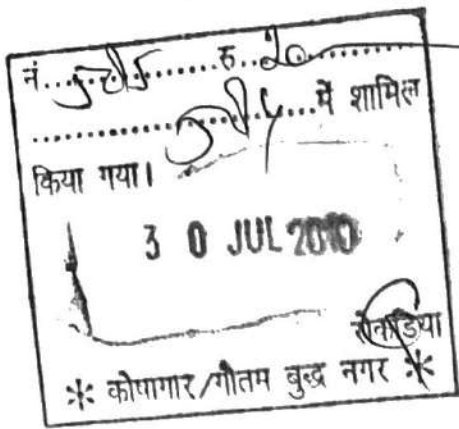 नं............रु..20............
............में शामिल
किया गया।
3 0 JUL 2010
रोकड़िया
* कोषागार/गौतम बुद्ध नगर *